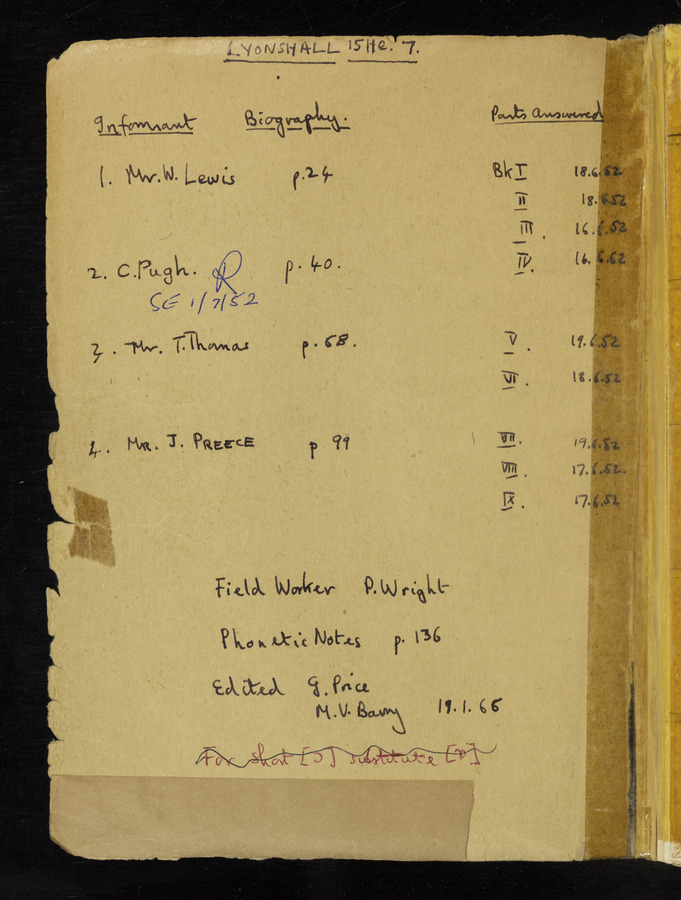 LYONSHALL 15 He. 7.
Infomrant Biography. Parts answered
1. Mr. W. Lewis p. 24 Bk I 18.6.52
II 18.6.52
III. 16.6.52
2. C. Pugh. R p. 40. IV. 16.6.52
SE 1/7/52
3. Mr. T. Thomas p. 68. V. 19.6.52
VI. 18.6.52
4. MR. J. PREECE p 99 VII. 19.6.52
VIII. 17.6.52.
IX. 17.6.52
Field Worker P. Wright
Phonetic Notes p. 136
Edited G. Price
M. V. Barry 19.1.66
For short [ɔ] substitute [ɒ]